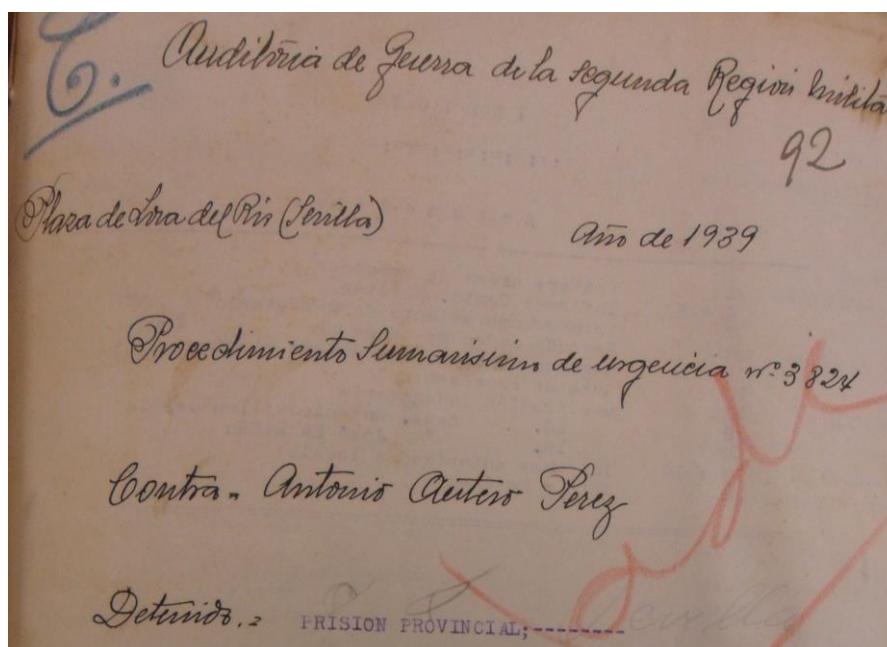 C.
Auditoria de Guerra de la segunda Región Milita
92
Plaza de Lora del Rio (Sevilla)
Año de 1939
Procedimiento Sumarisimo de urgencia nº 3824
Contra = Antonio Perez
Detenido. = PRISION PROVINCIAL;--------
Sevilla